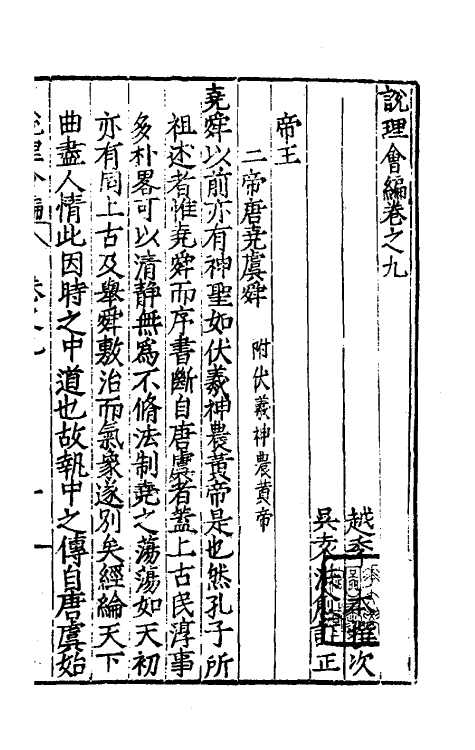 說理會編卷之九
越季本撰次
吳 正
帝王
二帝唐堯虞舜 附伏羲神農黃帝
堯舜以前亦有神聖如伏羲神農黃帝是也然孔子所
祖述者惟堯舜而序書斷自唐虞者蓋上古民淳事
多朴畧可以清靜無為不脩法制堯之蕩蕩如天初
亦有同上古及舉舜敷治而氣象遂別矣經綸天下
曲盡人情此因時之中道也故執中之傳自唐虞始